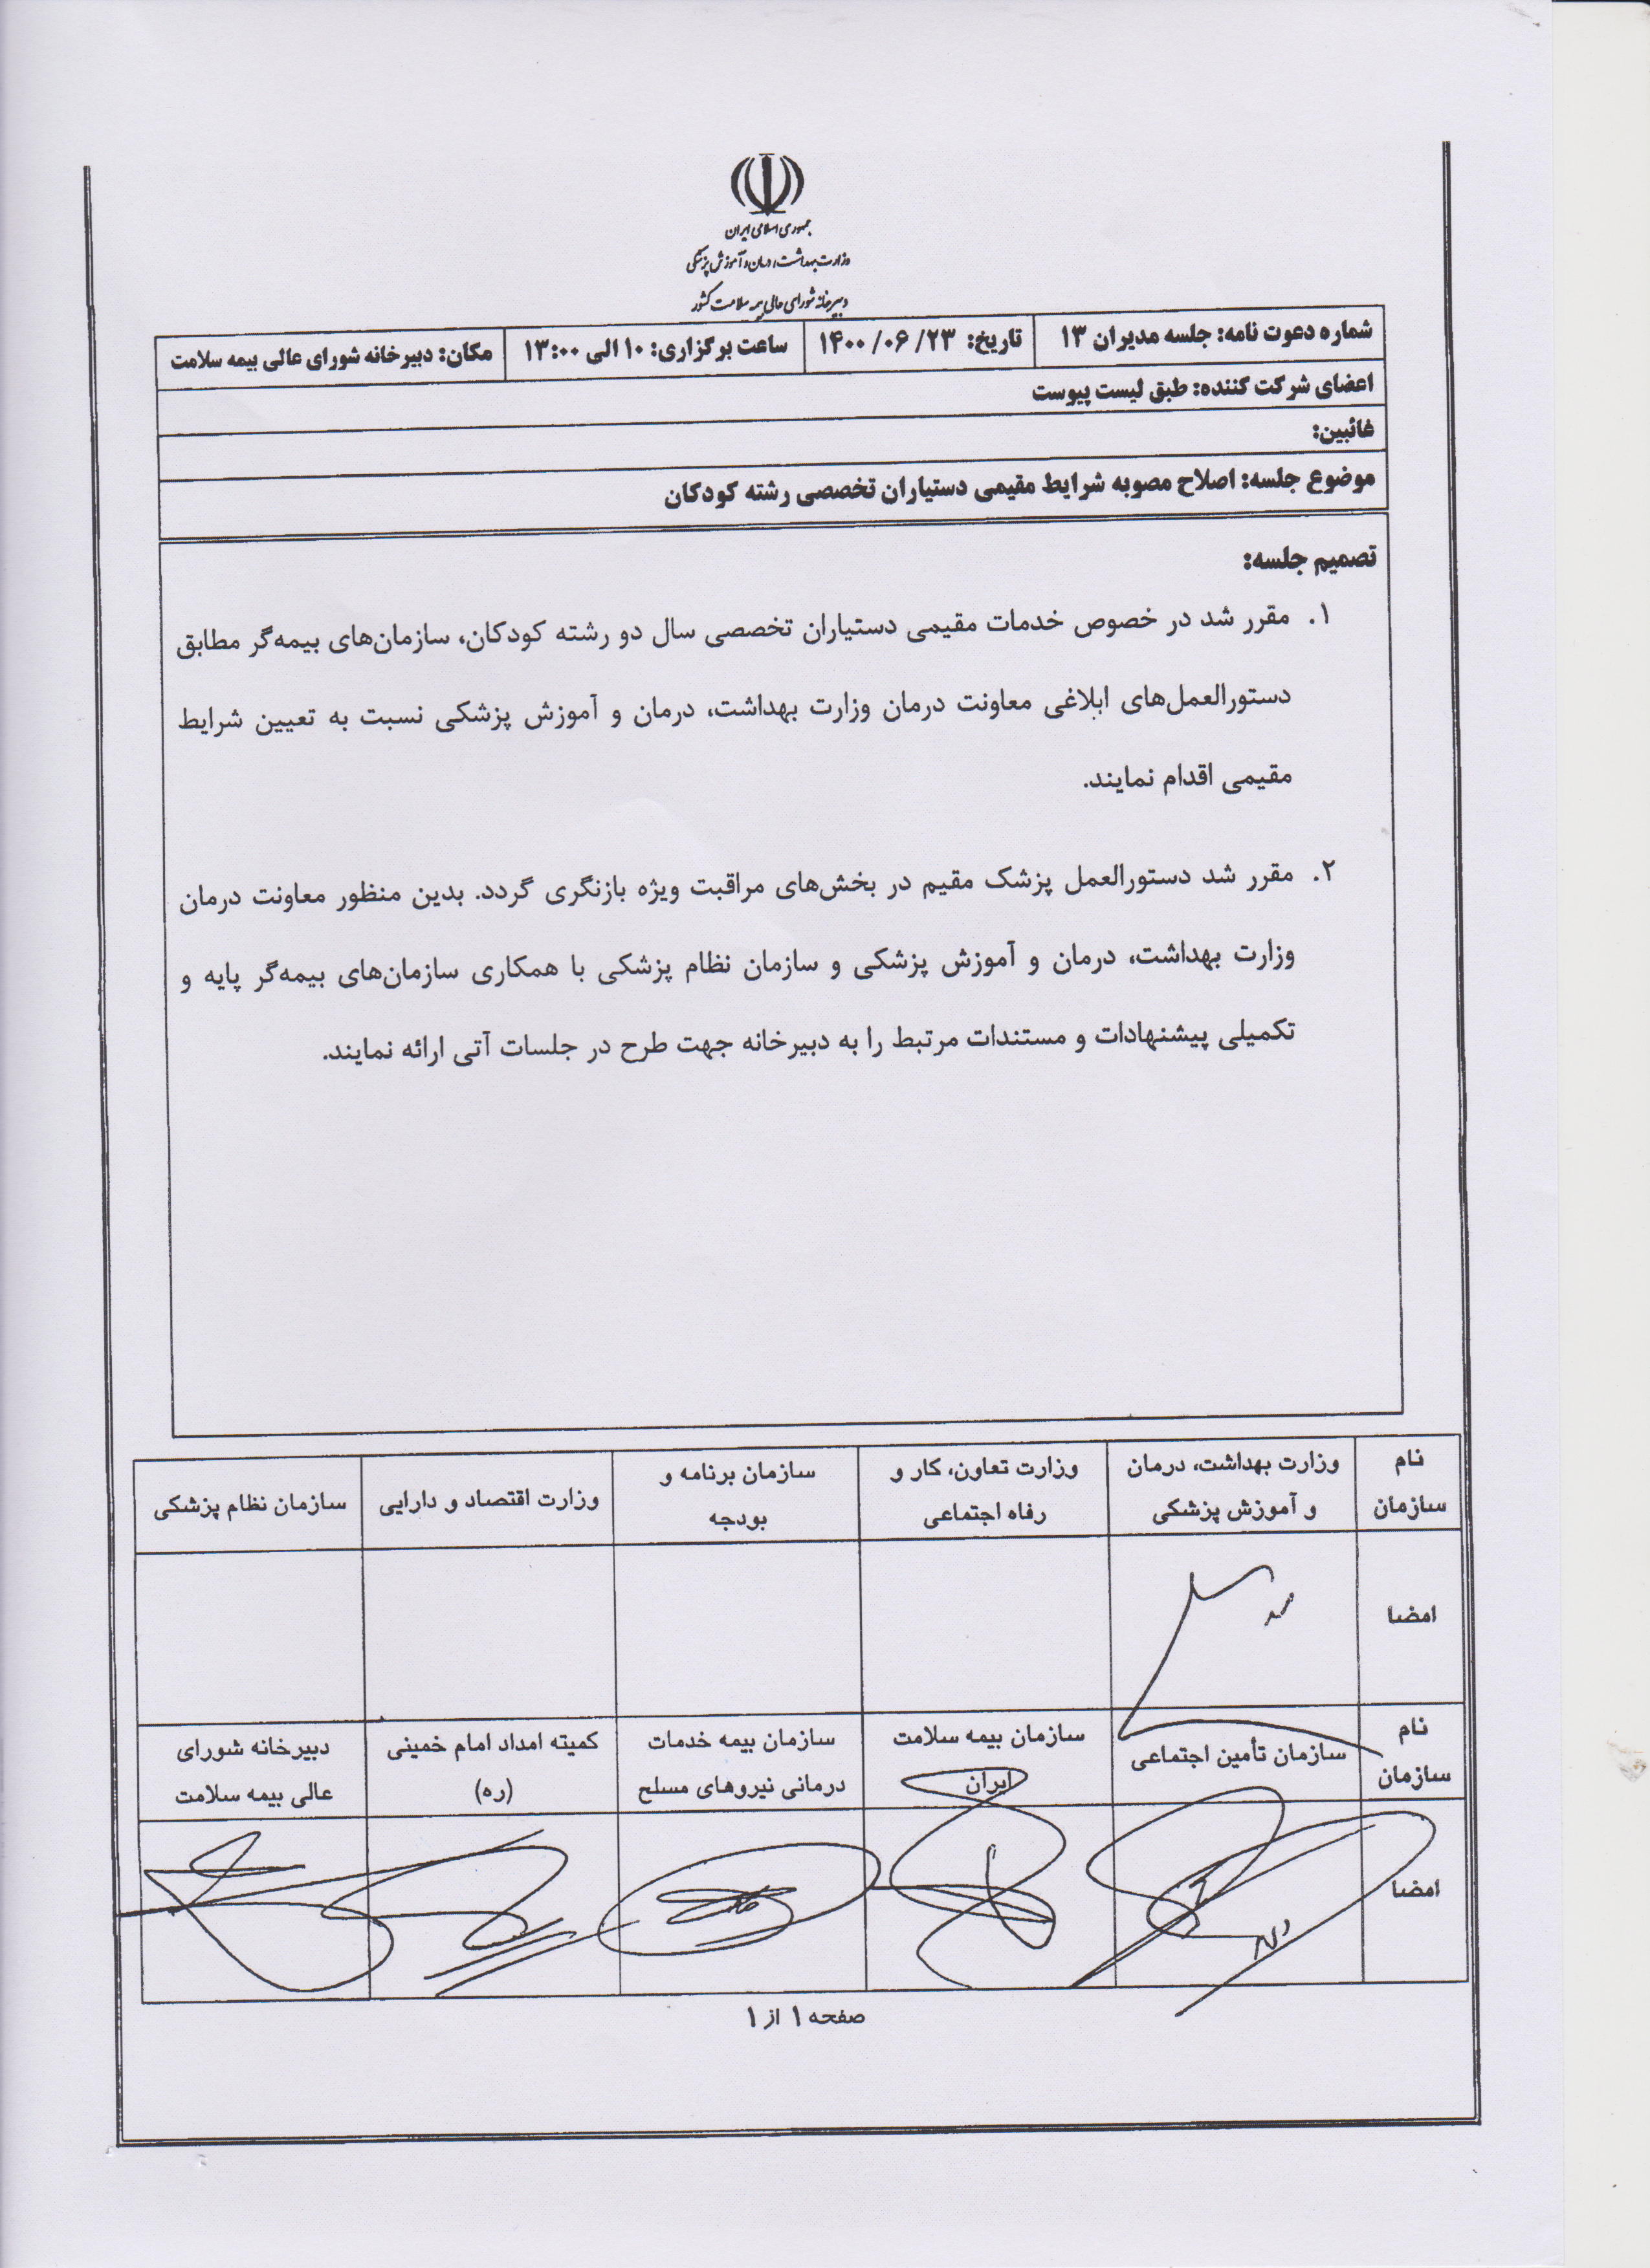 جمهوری اسلامی ایران
وزارت بهداشت، درمان و آموزش پزشکی
دبیرخانه شورای عالی بیمه سلامت کشور
شماره دعوت نامه: جلسه مدیران ۱۳ تاریخ: ۱۴۰۰/۰۶/۲۳ ساعت برگزاری: ۱۰ الی ۱۳:۰۰ مکان: دبیرخانه شورای عالی بیمه سلامت
اعضای شرکت کننده: طبق لیست پیوست
غائبین:
موضوع جلسه: اصلاح مصوبه شرایط مقیمی دستیاران تخصصی رشته کودکان
تصمیم جلسه:
۱. مقرر شد در خصوص خدمات مقیمی دستیاران تخصصی سال دو رشته کودکان، سازمان‌های بیمه‌گر مطابق
دستورالعمل‌های ابلاغی معاونت درمان وزارت بهداشت، درمان و آموزش پزشکی نسبت به تعیین شرایط
مقیمی اقدام نمایند.
۲. مقرر شد دستورالعمل پزشک مقیم در بخش‌های مراقبت ویژه بازنگری گردد. بدین منظور معاونت درمان
وزارت بهداشت، درمان و آموزش پزشکی و سازمان نظام پزشکی با همکاری سازمان‌های بیمه‌گر پایه و
تکمیلی پیشنهادات و مستندات مرتبط را به دبیرخانه جهت طرح در جلسات آتی ارائه نمایند.
نام سازمان وزارت بهداشت، درمان و آموزش پزشکی وزارت تعاون، کار و رفاه اجتماعی سازمان برنامه و بودجه وزارت اقتصاد و دارایی سازمان نظام پزشکی
امضا
نام سازمان سازمان تأمین اجتماعی سازمان بیمه سلامت ایران سازمان بیمه خدمات درمانی نیروهای مسلح کمیته امداد امام خمینی (ره) دبیرخانه شورای عالی بیمه سلامت
امضا
صفحه ۱ از ۱